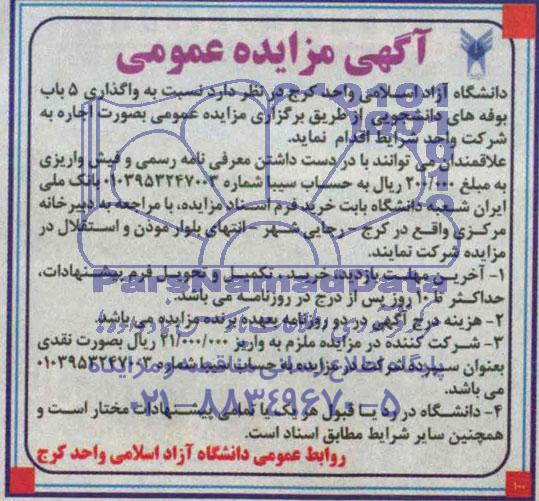 آگهی مزایده عمومی
دانشگاه آزاد اسلامی واحد کرج در نظر دارد نسبت به واگذاری ۵ باب
بوفه های دانشجویی از طریق برگزاری مزایده عمومی بصورت اجاره به
شرکت واجد شرایط اقدام نماید.
علاقمندان می توانند با در دست داشتن معرفی نامه رسمی و فیش واریزی
به مبلغ ۲۰۰/۰۰۰ ریال به حساب سیبا شماره ۰۱۰۳۹۵۳۲۴۷۰۰۳ بانک ملی
ایران شعبه دانشگاه بابت خرید فرم اسناد مزایده، با مراجعه به دبیرخانه
مرکزی واقع در کرج - رجایی شهر - انتهای بلوار موذن و استقلال در
مزایده شرکت نمایند.
۱- آخرین مهلت بازدید، خرید، تکمیل و تحویل فرم پیشنهادات،
حداکثر تا ۱۰ روز پس از درج در روزنامه می باشد.
۲- هزینه درج آگهی در دو روزنامه بعهده برنده مزایده می باشد.
۳- شرکت کننده در مزایده ملزم به واریز ۲۱/۰۰۰/۰۰۰ ریال بصورت نقدی
بعنوان سپرده شرکت در مزایده به حساب سیبا شماره ۰۱۰۳۹۵۳۲۴۷۰۰۳
می باشد.
۴- دانشگاه در رد یا قبول هر یک یا تمامی پیشنهادات مختار است و
همچنین سایر شرایط مطابق اسناد است.
روابط عمومی دانشگاه آزاد اسلامی واحد کرج
۱۰۰
ParsNamadData
۰۲۱-۸۸۳۴۹۶۷۰-۵